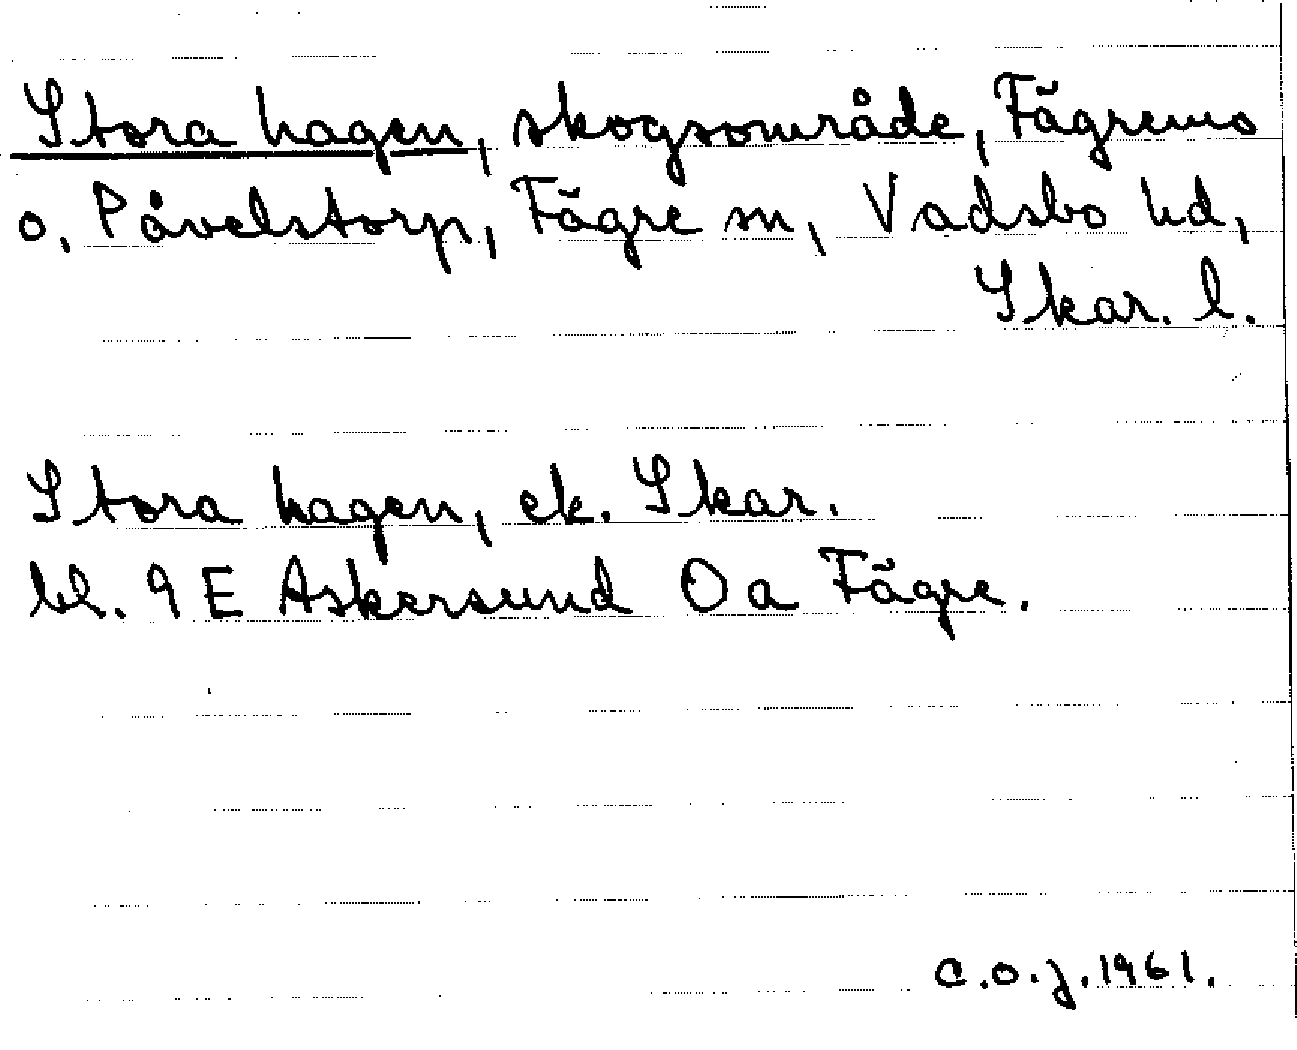 Stora hagen, skogsområde, Fägremo
o. Påvelstorp, Fägre sn, Vadsbo hd,
Skar. l.
Stora hagen, ek. Skar.
bl. 9 E Askersund O a Fägre.
C.O.J. 1961.